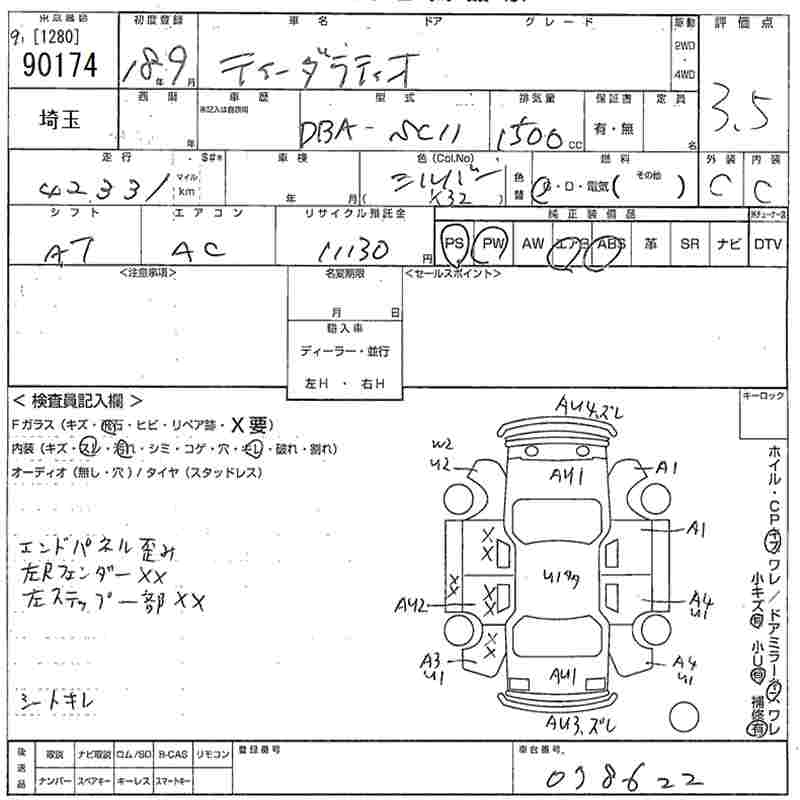 初度登録 車名 ドア グレード 駆動 評価点
[1280]
90174
18年9月
ティーダラティオ
2WD
4WD
3.5
埼玉
西暦 年
車歴
未記入は自家用
型式
DBA-SC11
排気量
1500cc
保証書
有・無
定員
名
走行
42331
マイル
km
車検
年 月
色(Col.No)
シルバー
(K32)
色替
燃料
・ロ・電気( その他 )
外装
C
内装
C
シフト
AT
エアコン
AC
リサイクル預託金
11130円
純正装備品
PS PW AW エアB ABS 革 SR ナビ DTV
<注意事項>
名変期限
月 日
輸入車
ディーラー・並行
左H ・ 右H
<セールスポイント>
<検査員記入欄>
Fガラス(キズ・飛石・ヒビ・リペア跡・X要)
内装(キズ・スレ・汚れ・シミ・コゲ・穴・キレ・破れ・割れ)
オーディオ(無し・穴)/タイヤ(スタッドレス)
エンドパネル歪み
左Rフェンダー XX
左ステップ一部 XX
シートキレ
キーロック
AU4.ズレ
W2
U2
AU1
A1
A1
X
X
XX
X
X
AU2
A4
U1
X
X
A3
U1
A4
U1
AU1
AU3.ズレ
ホイル・CPキズ ワレ/ドアミラーキズ ワレ
小キズ有 小U有 補修有
後送品
取説 ナビ取説 ロム/SD B-CAS リモコン
ナンバー スペアキー キーレス スマートキー
登録番号
車台番号
038622